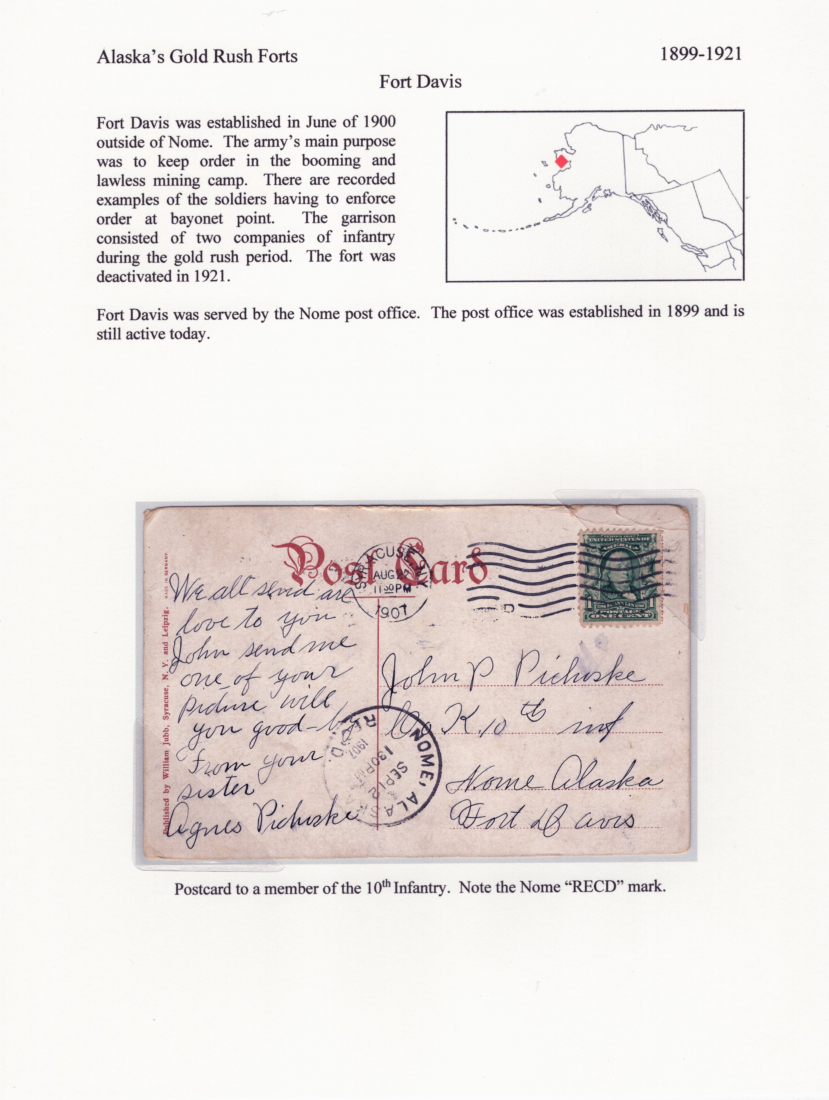 Alaska's Gold Rush Forts
1899-1921
Fort Davis
Fort Davis was established in June of 1900
outside of Nome. The army's main purpose
was to keep order in the booming and
lawless mining camp. There are recorded
examples of the soldiers having to enforce
order at bayonet point. The garrison
consisted of two companies of infantry
during the gold rush period. The fort was
deactivated in 1921.
Fort Davis was served by the Nome post office. The post office was established in 1899 and is
still active today.
MADE IN GERMANY.
Published by William Jubb, Syracuse, N. Y. and Leipzig.
Post Card
SYRACUSE N.Y.
AUG 22
11 30 PM
1907
UNITED STATES OF
AMERICA
1 1
POSTAGE
ONE CENT
We all send are
love to you
John send me
one of your
Picture will
you good-by
From your
sister
Agnes Pichuske
John P Pichuske
Co K. 10th inf
Nome Alaska
Fort Davis
NOME, ALASKA
SEP 12
1 30 PM
1907
REC'D.
Postcard to a member of the 10th Infantry. Note the Nome "RECD" mark.